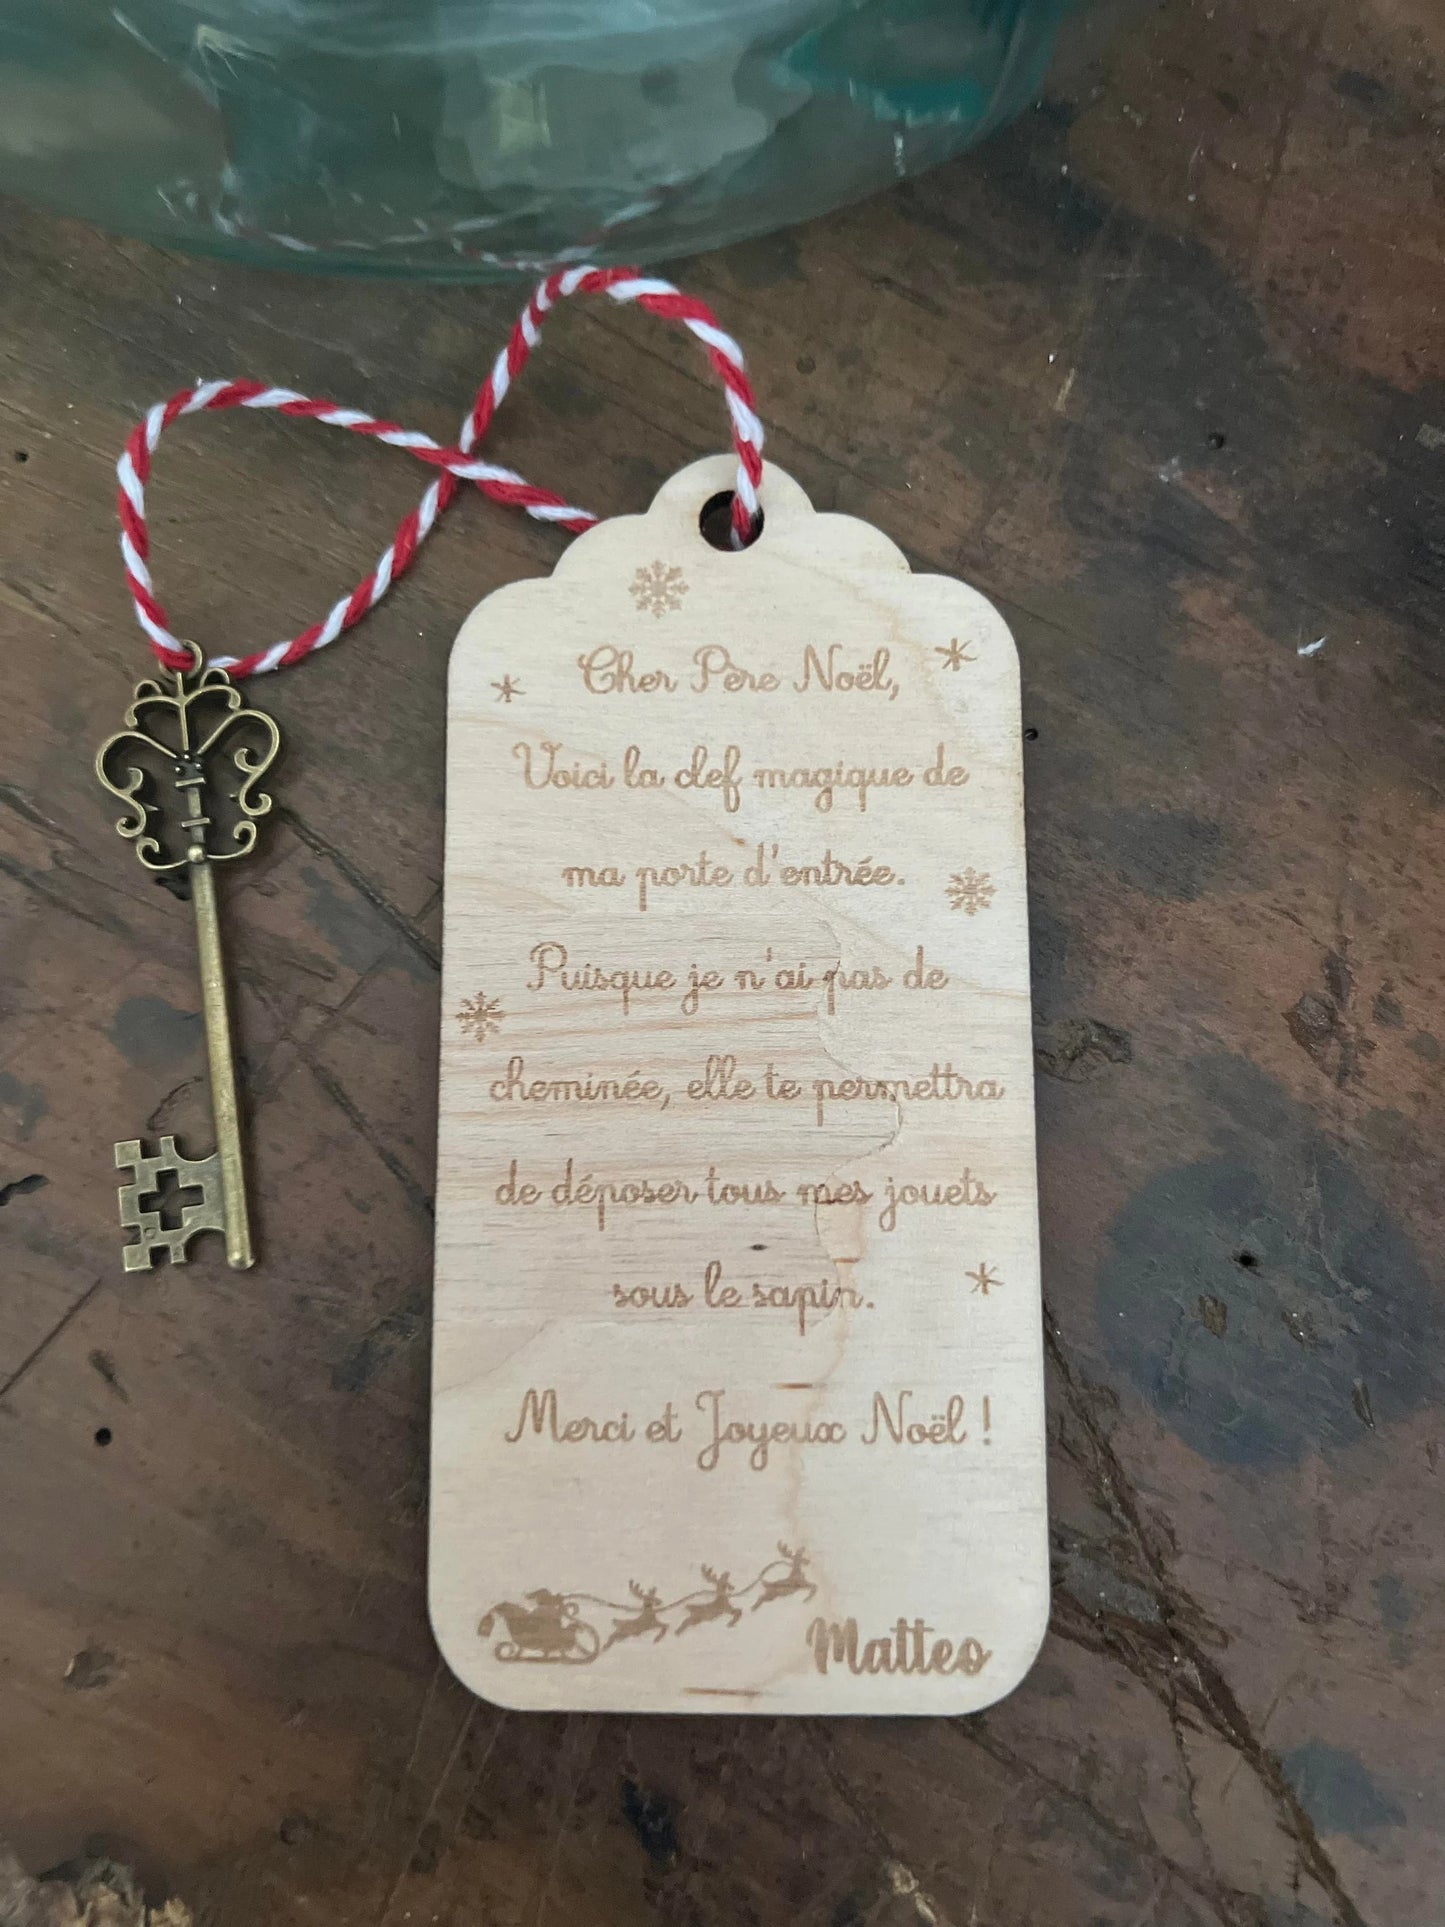 Cher Père Noël,
Voici la clef magique de
ma porte d'entrée.
Puisque je n'ai pas de
cheminée, elle te permettra
de déposer tous mes jouets
sous le sapin.
Merci et Joyeux Noël !
Matteo